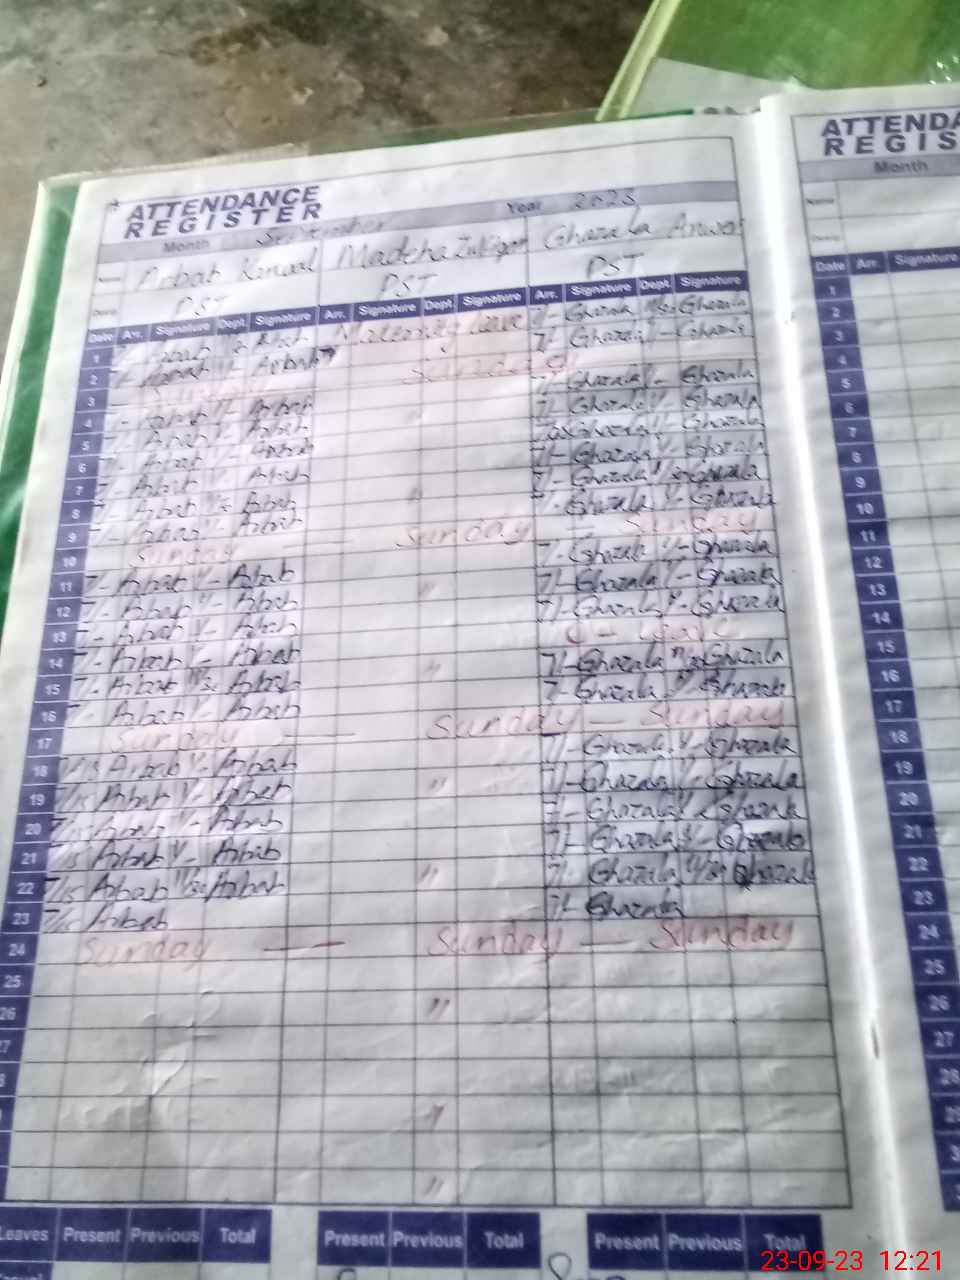 ATTENDANCE
REGISTER
Month September Year 2023
Name Arbab Kanwal Madeha Ghazala Anwar
Desig PST PST PST
Date Arr. Signature Dept. Signature Arr. Signature Dept. Signature Arr. Signature Dept. Signature
1 Arbab Arbab Maternity leave 7/- Ghazala Ghazala
2 Arbab Arbab 7/- Ghazala Ghazala
3 Sunday Sunday
4 7/- Arbab 1/- Arbab " 7/- Ghazala 1/- Ghazala
5 7/- Arbab 1/- Arbab Ghazala 1/- Ghazala
6 7/- Arbab 1/- Arbab Ghazala 1/- Ghazala
7 7/- Arbab 1/- Arbab " 7/- Ghazala 1/- Ghazala
8 7/- Arbab Arbab 7/- Ghazala Ghazala
9 7/- Arbab 1/- Arbab 7/- Ghazala 1/- Ghazala
10 Sunday — Sunday — Sunday
11 7/- Arbab 1/- Arbab " 7/- Ghazala 1/- Ghazala
12 7/- Arbab 1/- Arbab 7/- Ghazala 1/- Ghazala
13 7/- Arbab 1/- Arbab 7/- Ghazala 1/- Ghazala
14 7/- Arbab 1/- Arbab " C - leave
15 7/- Arbab 11/30 Arbab 7/- Ghazala 11/30 Ghazala
16 7/- Arbab 1/- Arbab 7/- Ghazala 1/- Ghazala
17 Sunday — Sunday — Sunday
18 7/15 Arbab 1/- Arbab " 7/- Ghazala 1/- Ghazala
19 7/15 Arbab 1/- Arbab 7/- Ghazala 1/- Ghazala
20 7/15 Arbab 1/- Arbab 7/- Ghazala 1/- Ghazala
21 7/15 Arbab 1/- Arbab " 7/- Ghazala 1/- Ghazala
22 7/15 Arbab 11/30 Arbab 7/- Ghazala 11/30 Ghazala
23 7/15 Arbab 7/- Ghazala
24 Sunday — Sunday — Sunday
25
26 "
"
"
Leaves Present Previous Total Present Previous Total Present Previous Total
ATTENDA
REGIS
Month
Name
Desig
Date Arr. Signature
1
2
3
4
5
6
7
8
9
10
11
12
13
14
15
16
17
18
19
20
21
22
23
24
25
26
27
28
23-09-23 12:21